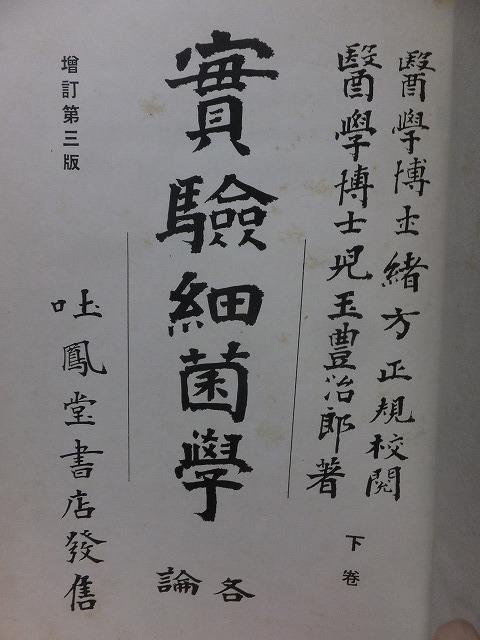 醫學博士緒方正規校閱
醫學博士児玉豊治郎著
下卷
實驗細菌學
各論
增訂第三版
吐鳳堂書店發售